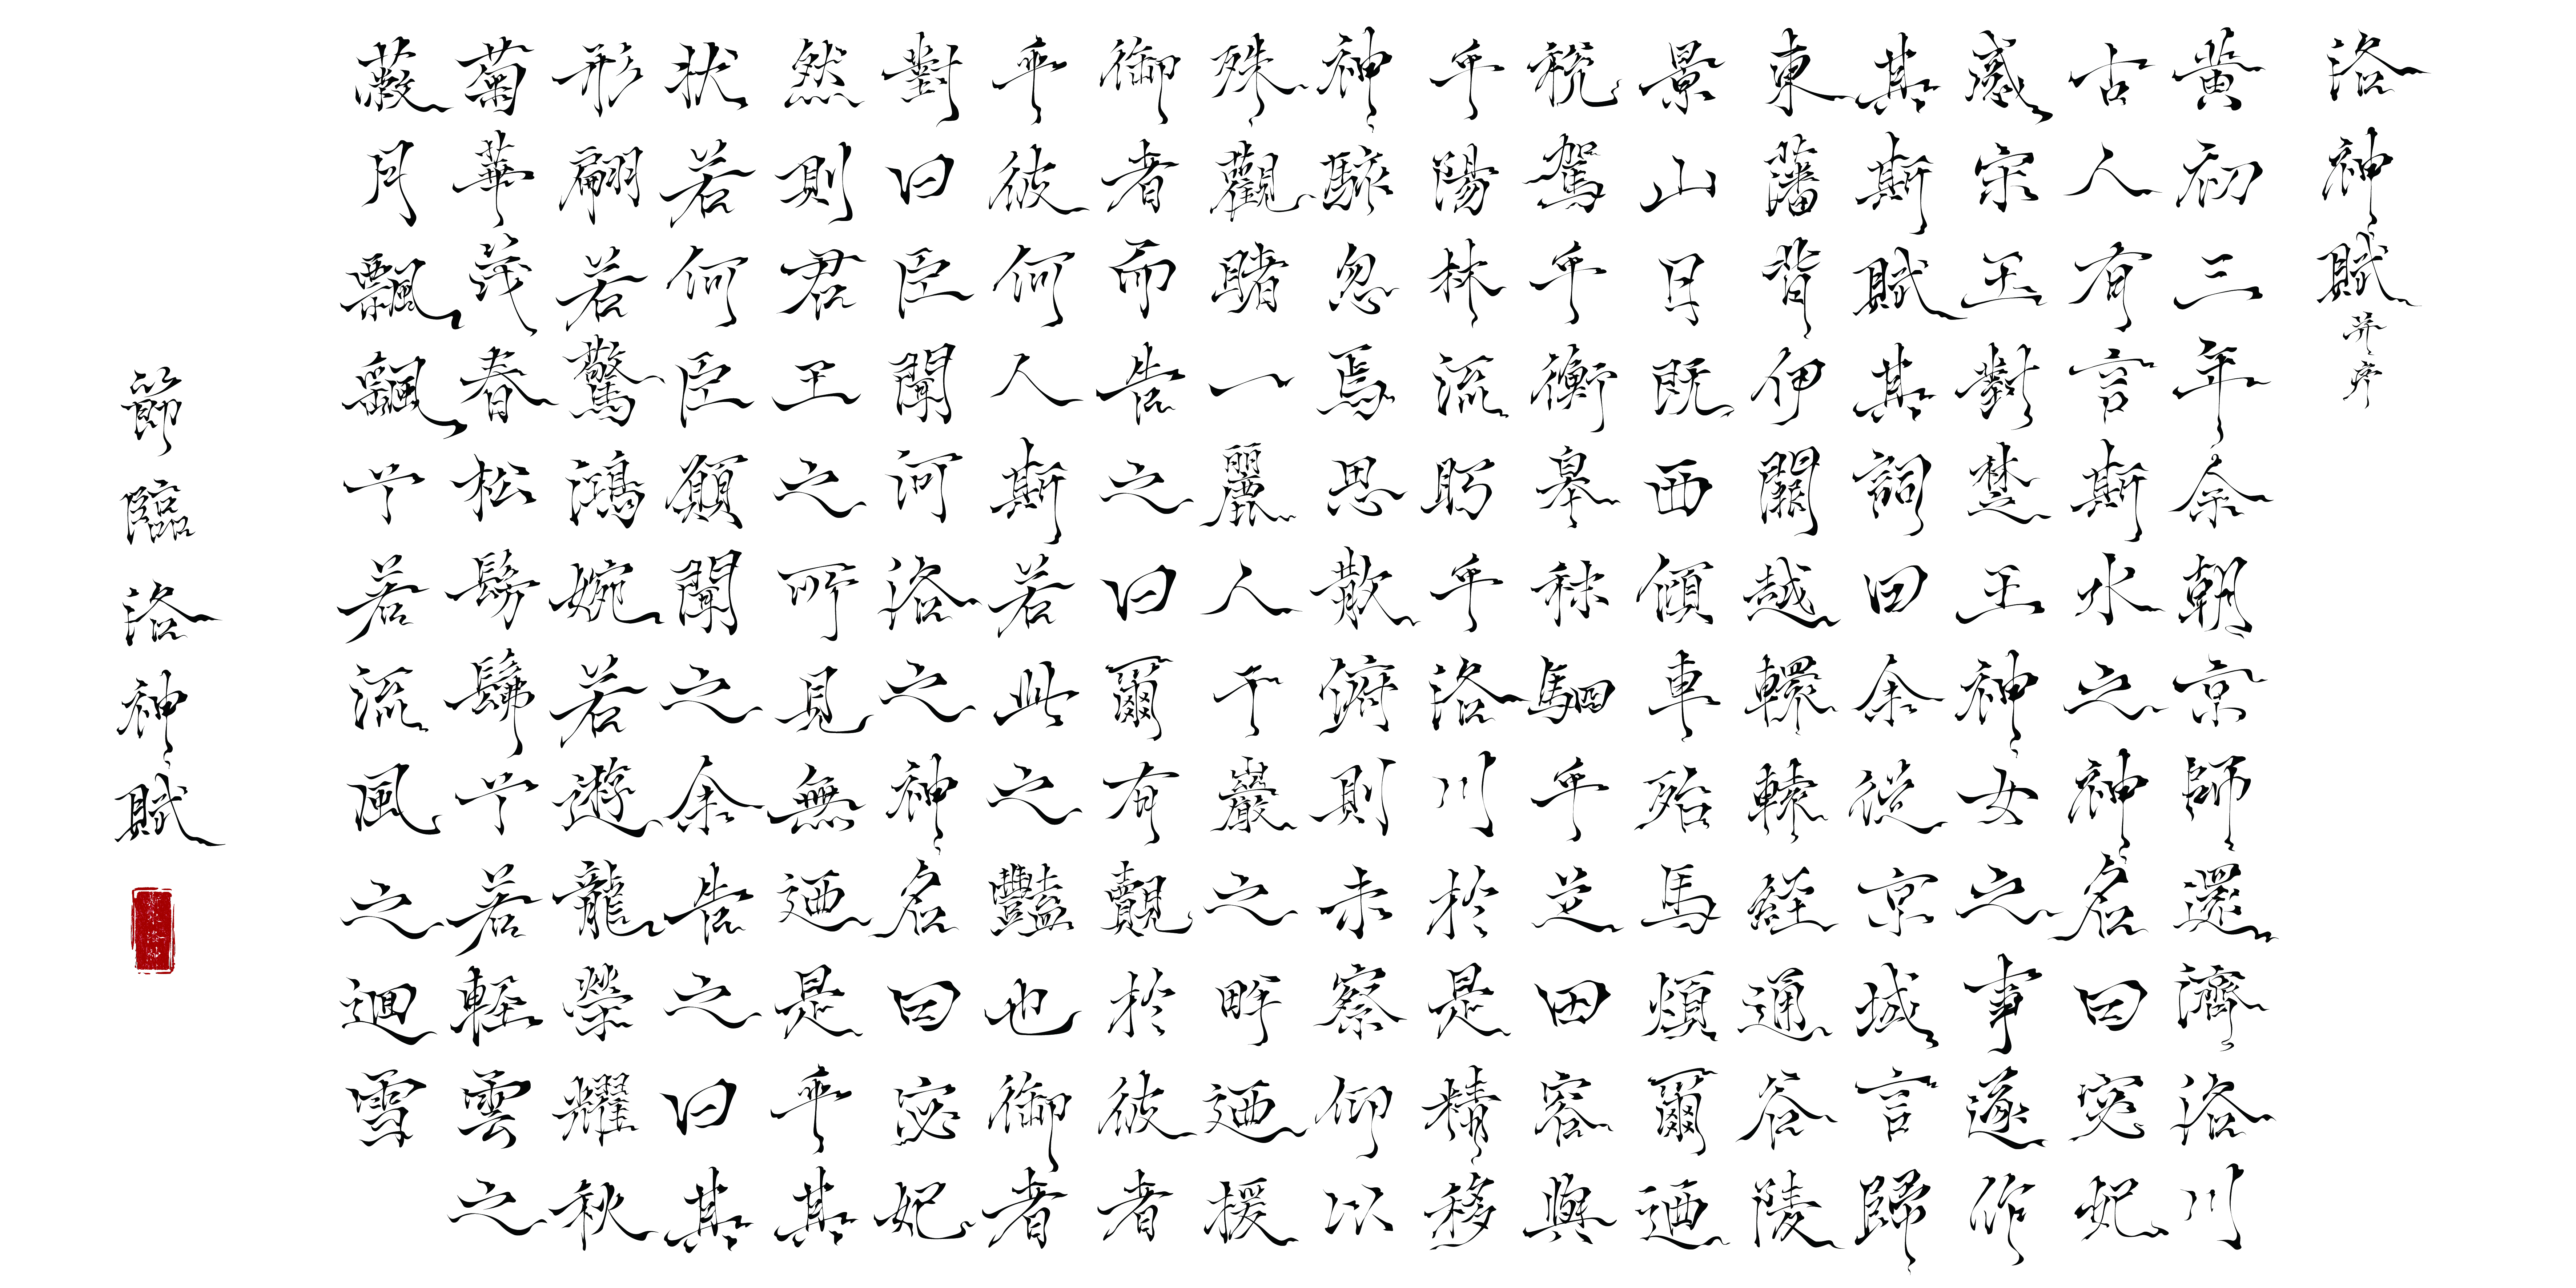 洛神賦并序
黄初三年余朝京師還濟洛川
古人有言斯水之神名曰宓妃
感宋玉對楚王神女之事遂作
其斯賦其詞曰余從京城言歸
東藩背伊闕越轘轅經通谷陵
景山日既西傾車殆馬煩爾迺
稅駕乎衡皋秣駟乎芝田容與
乎陽林流眄乎洛川於是精移
神駭忽焉思散俯則未察仰以
殊觀睹一麗人于巖之畔迺援
御者而告之曰爾有覿於彼者
乎彼何人斯若此之豔也御者
對曰臣聞河洛之神名曰宓妃
然則君王之所見無迺是乎其
狀若何臣願聞之余告之曰其
形翩若驚鴻婉若遊龍榮耀秋
菊華茂春松髣髴兮若輕雲之
蔽月飄颻兮若流風之迴雪
節臨洛神賦